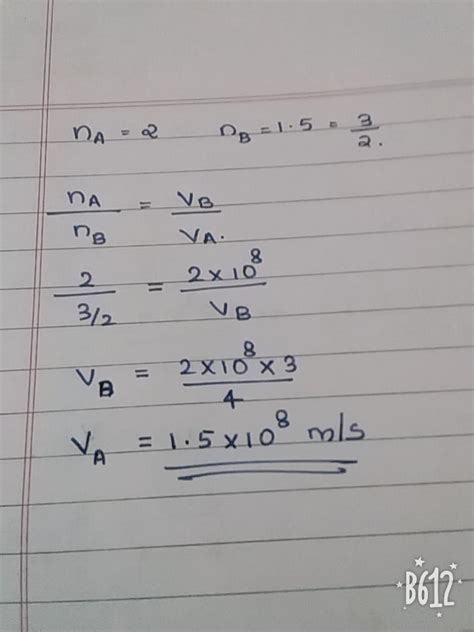 nA = 2 nB = 1.5 = 3/2.
nA/nB = VB/VA.
2/3/2 = 2×10⁸/VB
VB = 2×10⁸×3/4
VA = 1.5×10⁸ m/s
B612